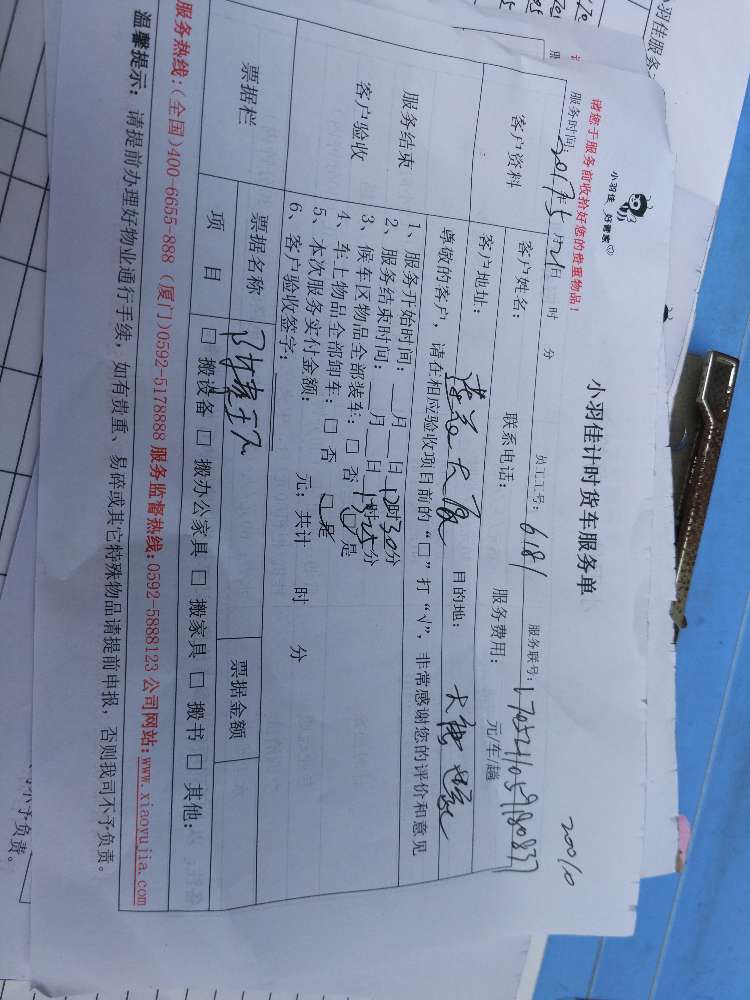 小羽佳 好管家
请您于服务前收拾好您的贵重物品！
小羽佳计时货车服务单
20010
服务时间：2017年5月21日 时 分 员工工号：6181 服务联号：1705211059180837
客户资料
客户姓名： 联系电话： 服务费用： 元/车/趟
客户地址：莲花大厦 目的地：
服务结束
客户验收
尊敬的客户，请在相应验收项目前的“□”打“√”，非常感谢您的评价和意见
1、服务开始时间：__月__日12时30分
2、服务结束时间：__月__日13时25分
3、候车区物品全部装车：□ 否 □ 是
4、车上物品全部卸车：□ 否 □ 是
5、本次服务实付金额： 元；共计 时 分
6、客户验收签字：
票据栏
票据名称
票据金额
项 目
□ 搬设备 □ 搬办公家具 □ 搬家具 □ 搬书 □ 其他：
服务热线：(全国)400-6655-888 (厦门)0592-5178888 服务监督热线：0592-5888123 公司网站：www.xiaoyujia.com
温馨提示：请提前办理好物业通行手续，如有贵重、易碎或其它特殊物品请提前申报，否则我司不予负责。
不予负责。
小羽佳服务